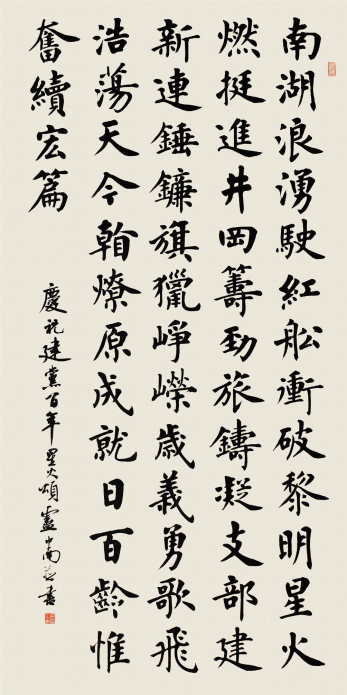 南湖浪湧駛紅船衝破黎明星火
燃挺進井岡籌勁旅鑄凝支部建
新連錘鐮旗獵崢嶸歲義勇歌飛
浩蕩天今翰燎原成就日百齡惟
奮續宏篇
慶祝建黨百年星火頌